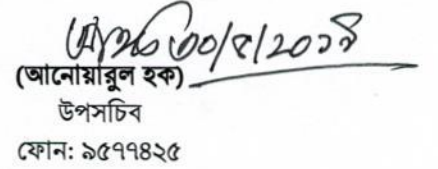 ৩০/৫/২০১৪
(আনোয়ারুল হক)
উপসচিব
ফোন: ৯৫৭৭৪২৫